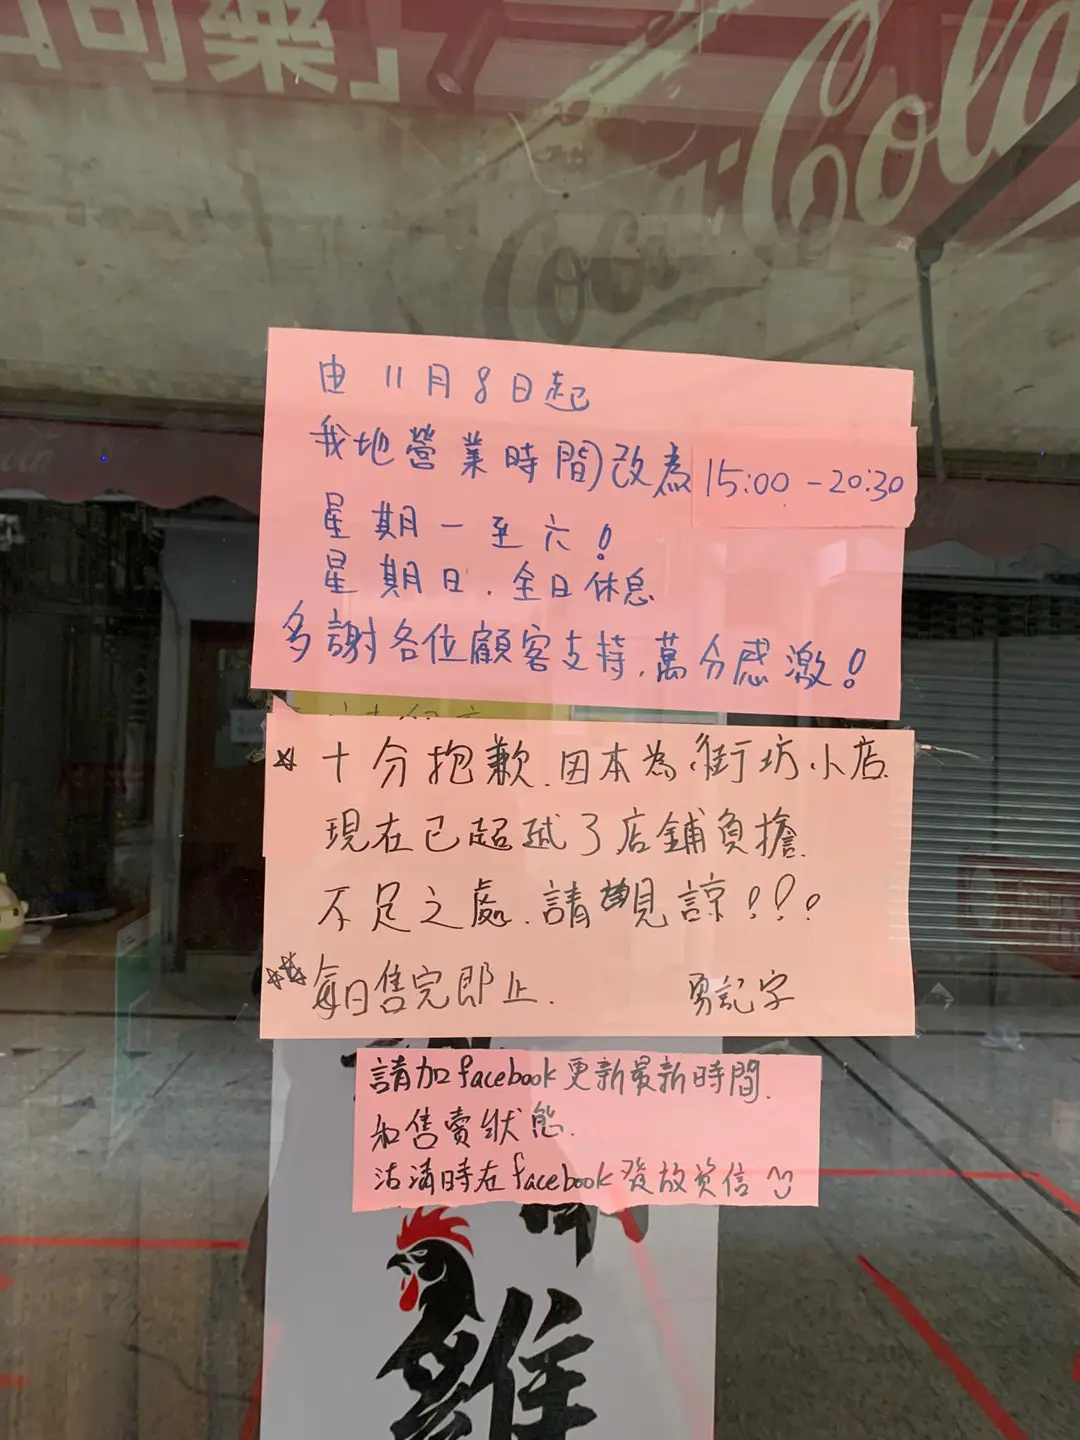 可樂」
Cola
Coca
由11月8日起
我地營業時間改為 15:00 - 20:30
星期一至六！
星期日，全日休息
多謝各位顧客支持，萬分感激！
☆ 十分抱歉，因本為街坊小店，
現在已超越了店鋪負擔，
不足之處，請見諒！！！
☆☆ 每日售完即止． 勇記字
請加facebook更新最新時間，
和售賣狀態．
沽清時在facebook發放資信
雞